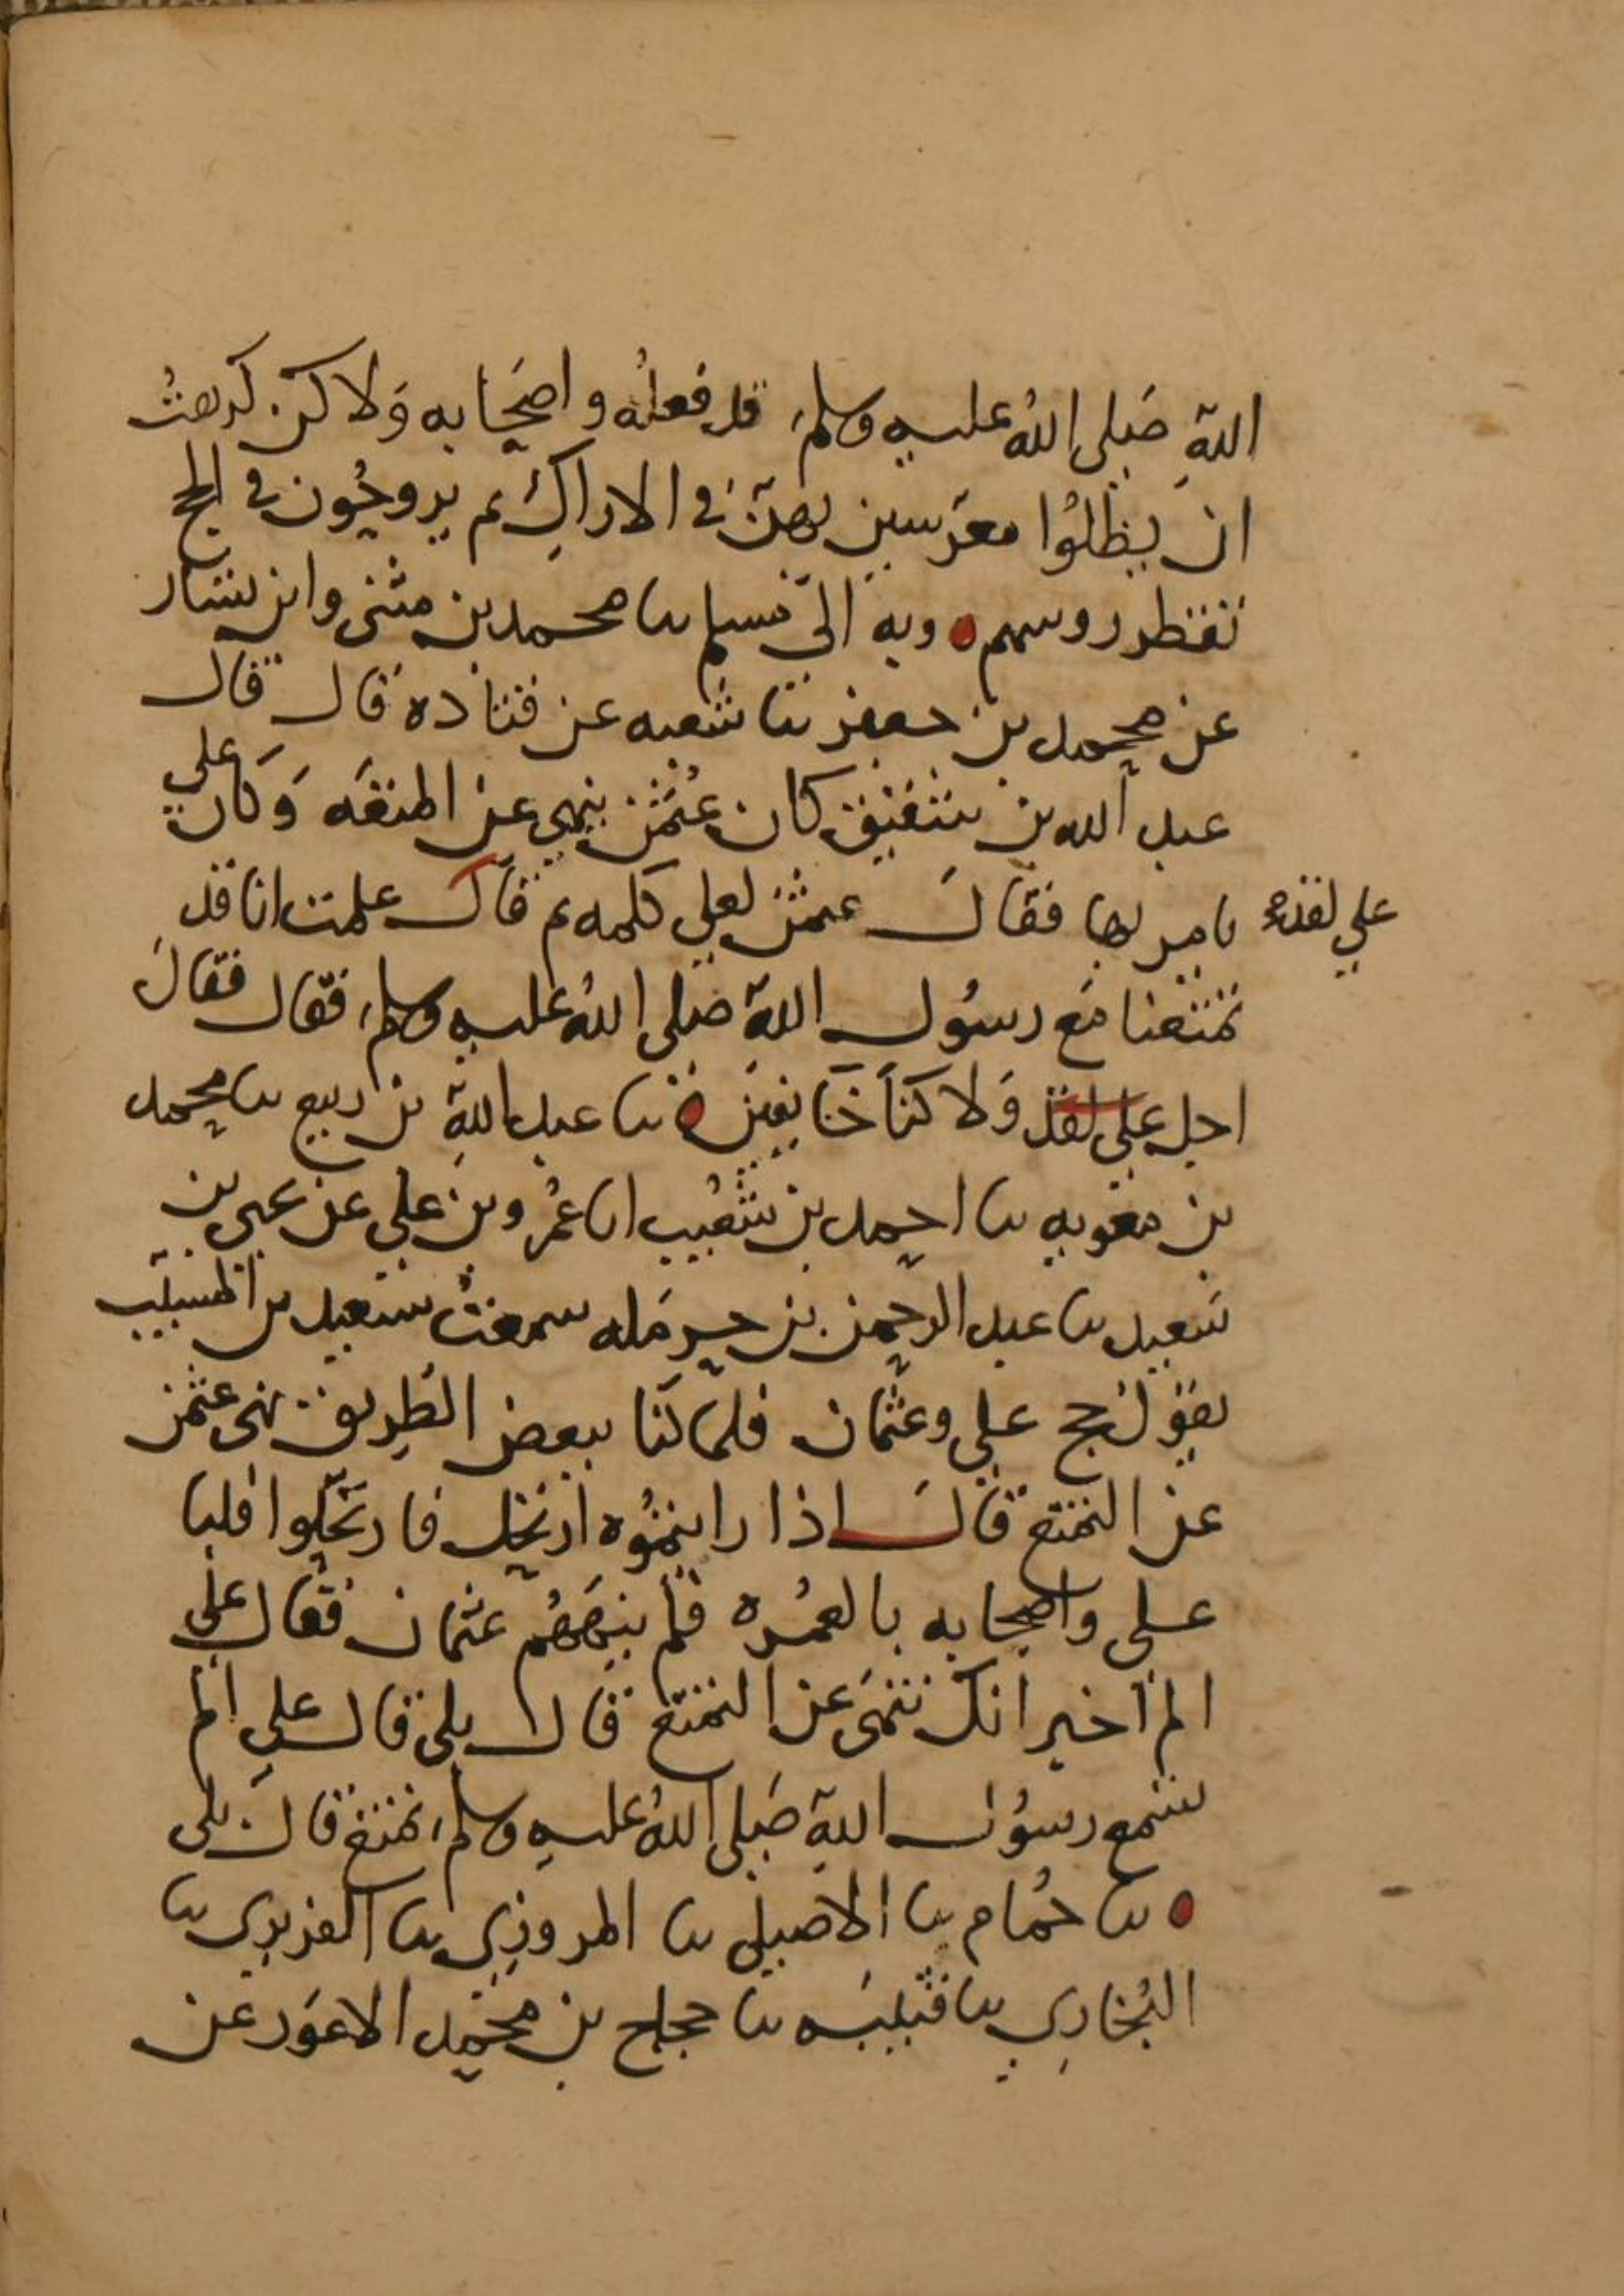 اللهِ صَلى اللهُ عليه وسلم قد فعلهُ واصحَابه وَلاكن كرهتُ
ان يظلوُا معَرسين بهنّ في الاراكِ ثم يروحُون في الحج
تقطر روسهم ٥ وبه الىّ مسلم نا محمد بن مثنى وابن بشار
عن محمد بن جعفر نا شعبه عن قتاده قال قال
عبد الله بن شقيق كان عُثمٰن ينهى عن المتعَه وَكان علي
يامر بها فقالَ عثمٰن لعلي كلمه ثم قال علمت انا قد
علي لقد
تمتعنا مَع رسُول اللهِ صَلى اللهُ عليه وسلم فقال فقالَ
اجل علي لقد وَلاكنَا خَايفين ٥ نا عبد اللهِ بن ربيع نا محمد
بن معويه نا احمد بن شُعَيب انا عَمْرو بن علي عن يحيى بن
سَعيد نا عبد الرحمن بن حرمَله سمعتُ سَعيد بن المسيّب
يقوُل حج علي وعثمان فلما كنا ببعض الطَرِيق نهى عثمٰن
عن التمتع قالَ اذا رايتموُه ارتحل فارتحَلوا فلبا
على واصحابه بالعمُره فلم ينهَهُم عثمان فقال علي
الم اخبر انك تنهَى عن التمتع قال بلى قال علي الم
تسمع رسوُل اللهِ صَلى اللهُ عليه وسلم تمتع قالَ بلى
٥ نا حُمام نا الاصيلي نا المروزِي نا الفربرِي نا
البُخارِي نا قتيبَه نا حجاج بن محمد الاعوَر عن